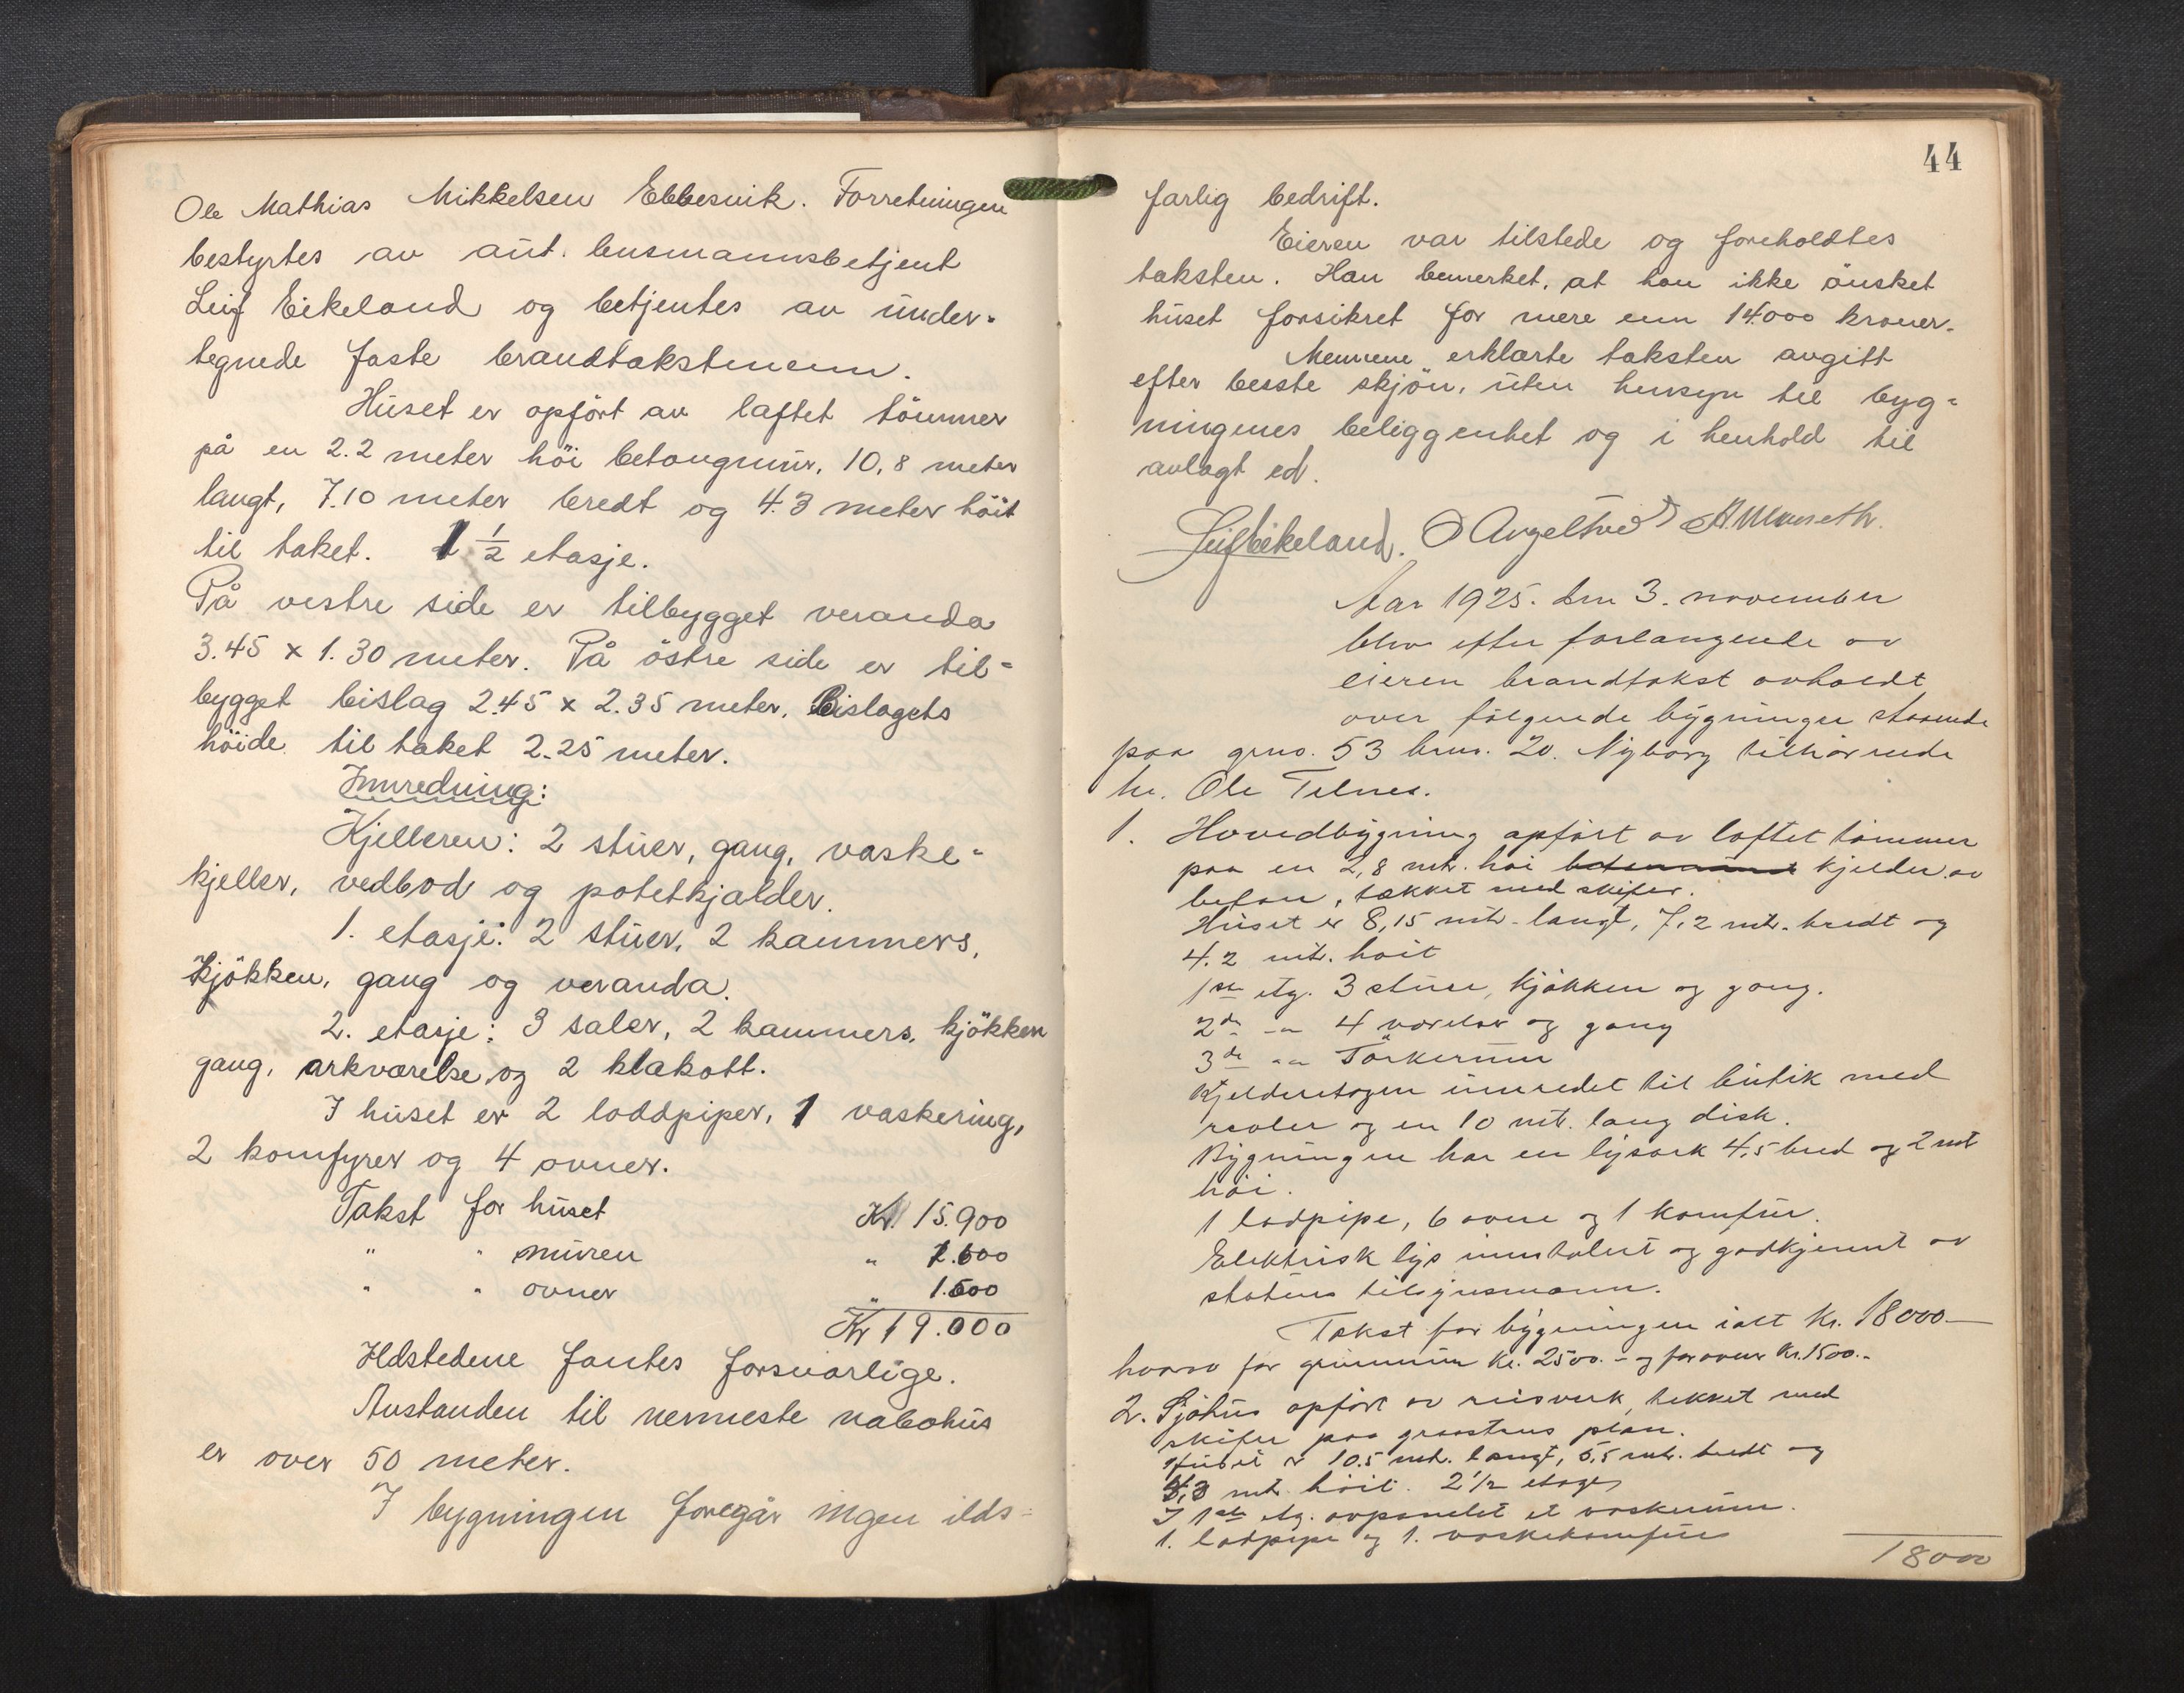 Ole Mathias Mikkelsen Ebbesvik. Forretningen
bestyrtes av aut. lensmannsbetjent
Leif Eikeland og betjentes av under-
tegnede faste brandtakstmenn.
Huset er opført av laftet tömmer
på en 2.2 meter höi betongmur, 10,8 meter
langt, 7.10 meter bredt og 4.3 meter höit
til taket. 1 1/2 etasje.
På vestre side er tilbygget veranda
3.45 x 1.30 meter. På östre side er til-
bygget bislag 2.45 x 2.35 meter, Bislagets
höide til taket 2.25 meter.
Innredning:
Kjelleren: 2 stuer, gang, vaske-
kjeller, vedbod og potetkjalder.
1. etasje: 2 stuer, 2 kammers,
Kjökken, gang og veranda.
2. etasje: 3 saler, 2 kammers, kjökken
gang, arkværelse og 2 klakott.
I huset er 2 loddpiper, 1 vaskering,
2 komfyrer og 4 ovner.
Takst for huset Kr. 15.900
" " muren " 1.600
" " ovner " 1.500
Kr 19.000
Ildstedene fantes forsvarlige.
Avstanden til nermeste nabohus
er over 50 meter.
I bygningen foregår ingen ilds-
44
farlig bedrift.
Eieren var tilstede og foreholdtes
taksten. Han bemerket, at han ikke önsket
huset forsikret for mere enn 14000 kroner.
Mennene erklærte taksten avgitt
efter besste skjön, uten hensyn til byg-
ningenes beliggenhet og i henhold til
avlagt ed.
Leif Eikeland.
Aar 1925. den 3. november
blev efter forlangende av
eieren brandtakst avholdt
over følgende bygninger staaende
paa grno. 53 brno. 20. Nyborg tilhørende
hr. Ole Telnes.
1. Hovedbygning opført av loftet tømmer
paa en 2,8 mtr. høi betonmur kjelder av
beton, tækket med skifer.
Huset er 8,15 mtr. langt, 7,2 mtr. bredt og
4.2 mtr. høit
1ste etg. 3 stuer, kjøkken og gang.
2de -"- 4 værelser og gang
3de -"- Tørkerum
Kjelderetagen innredet til butik med
reoler og en 10 mtr. lang disk.
Bygningen har en lysark 4,5 bred og 2 mt
høi.
1 lodpipe, 6 ovne og 1 komfur.
Elektrisk lys innstalert og godkjennt av
statens tilsynsmann.
Takst for bygningen ialt Kr. 18000.—
hvorav for grunnmur Kr. 2500.- og for ovner Kr. 1500.-
2. Sjøhus opført av reisverk, tekket med
skifer paa graastens plan.
Huset er 10.5 mtr. langt, 5,5 mtr. bredt og
mtr. høit. 2 1/2 etage
I 1ste etg. avpanelet et vaskerum.
1. lodpipe og 1. vaskekomfur
18000